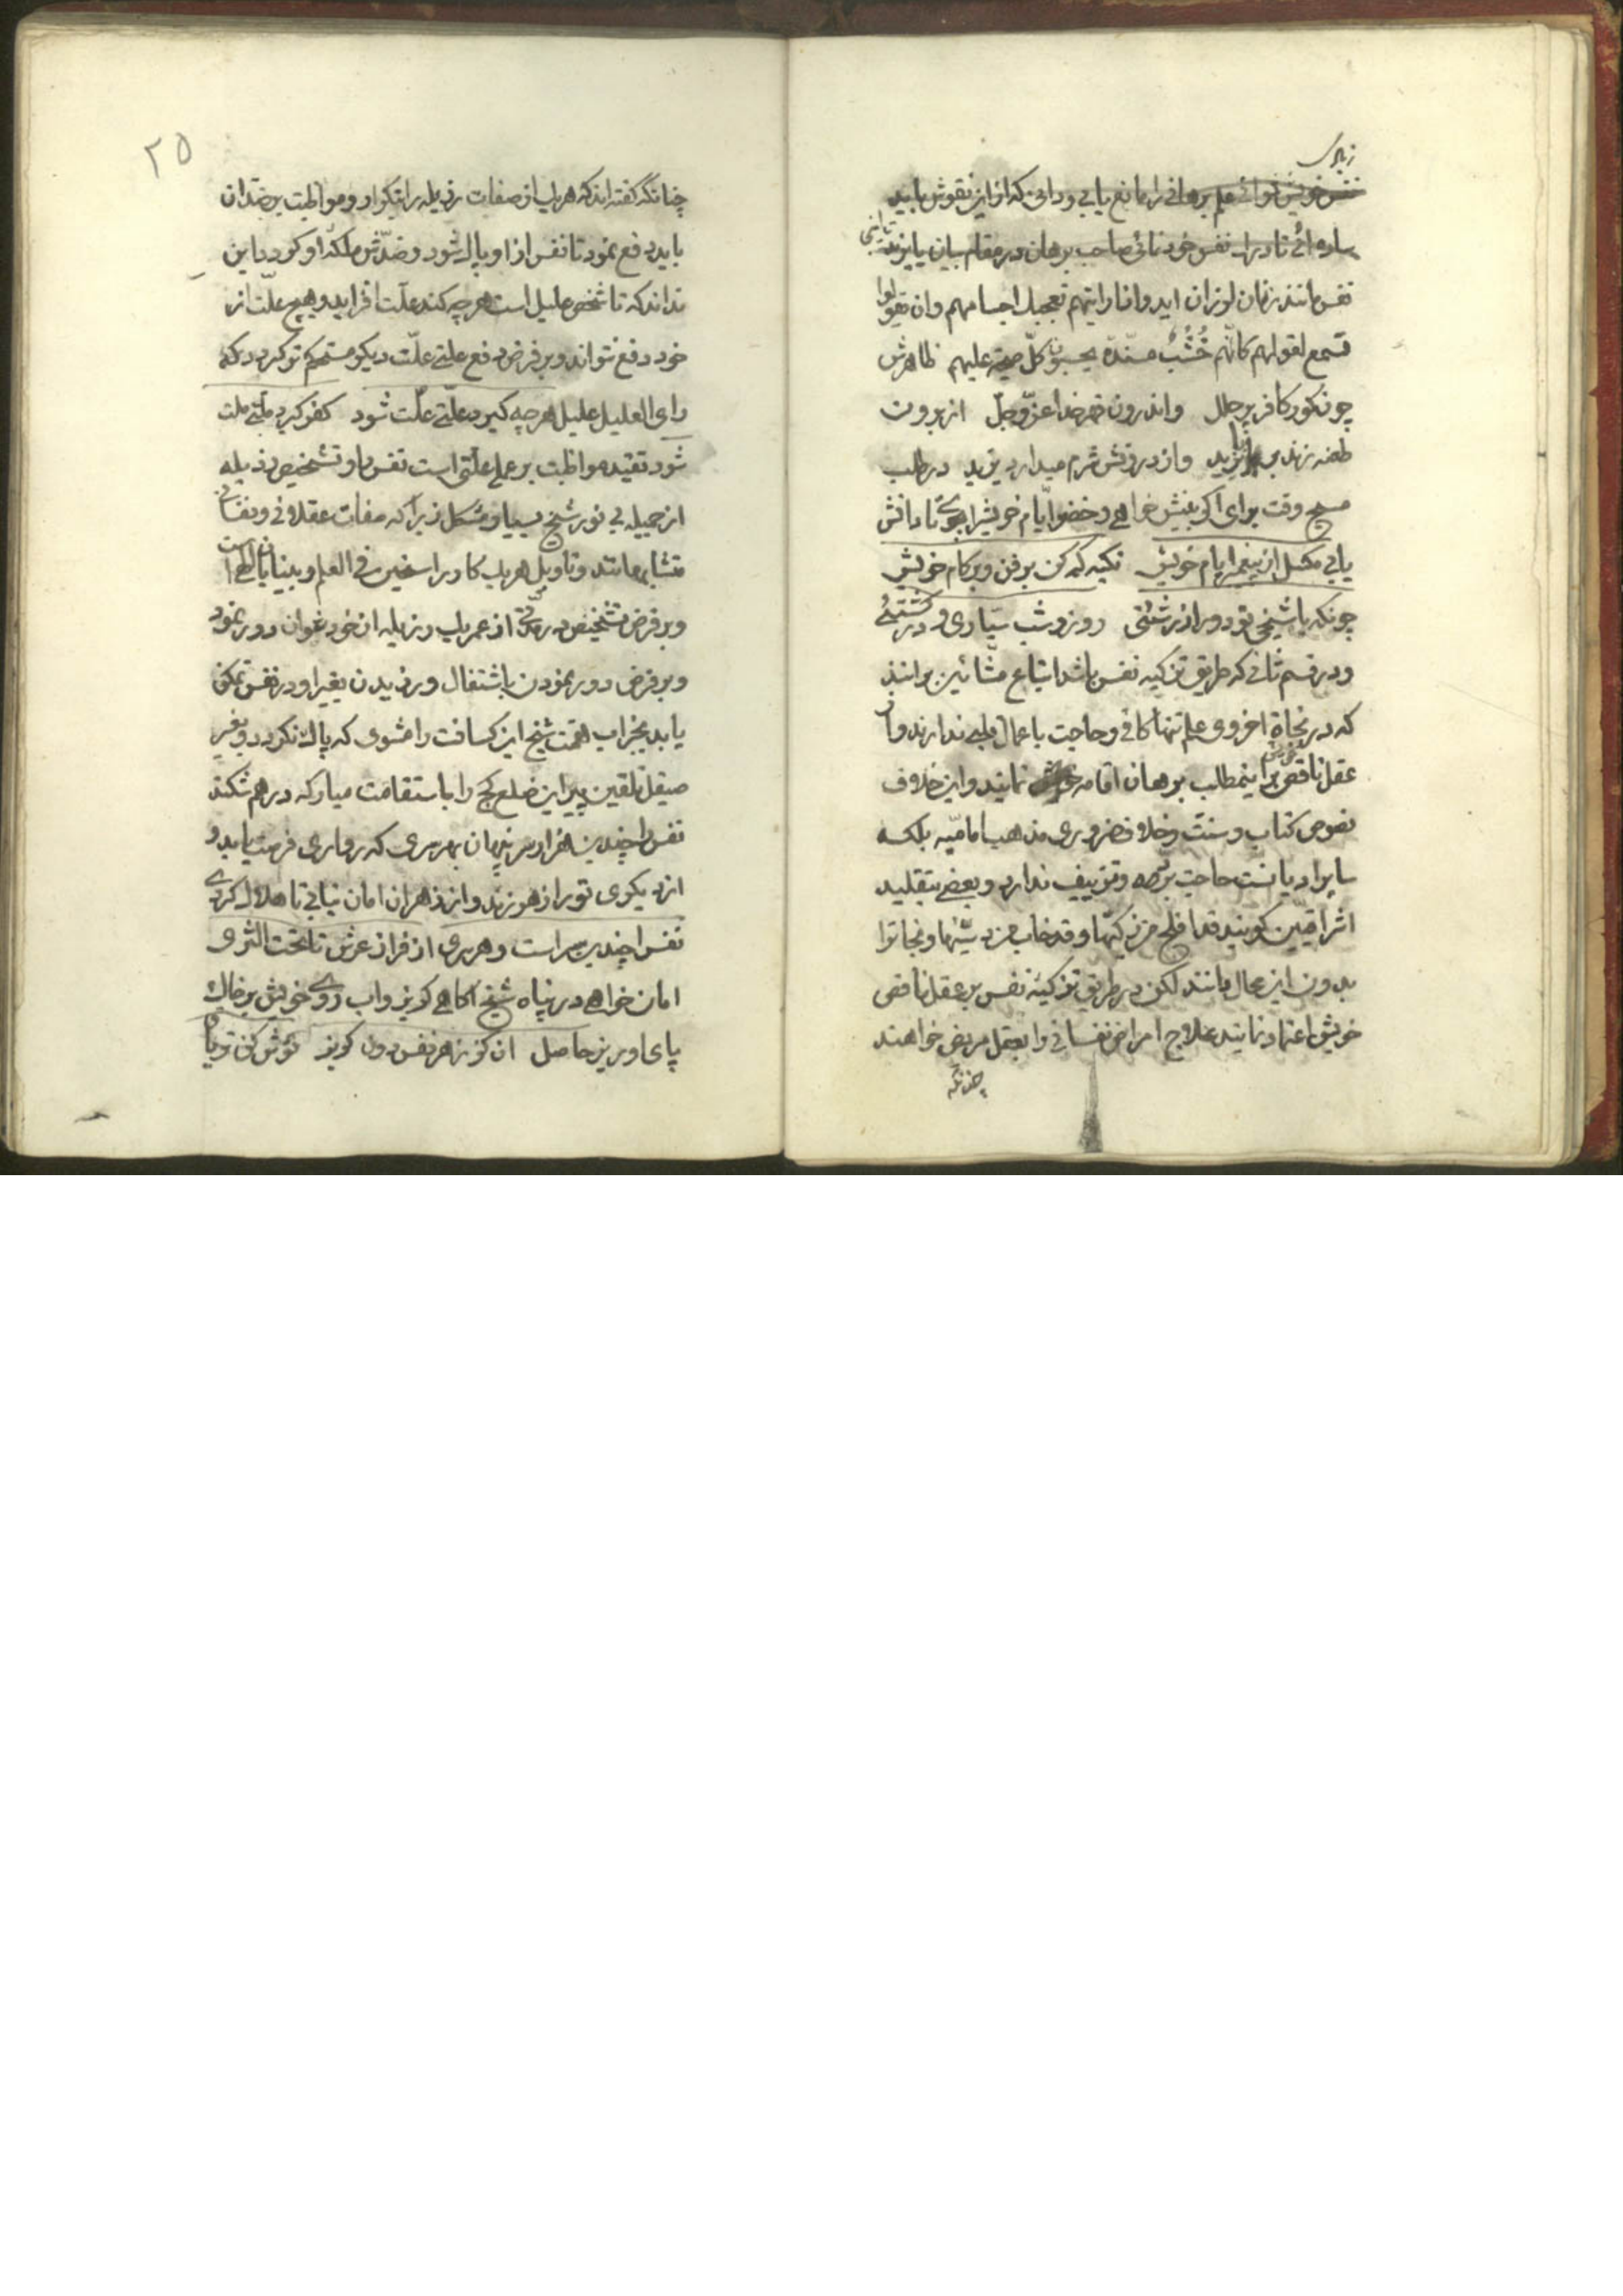 زیاری
نفس خویش نوائے علم برهانی را مانع یابی و دانی که از این نقوش باید
ساده ائے تا دراے نفس خود نمائی صاحب برهان در مقام بیان با یزید ثانی
نفس مانند زمان لوزان اید و اذا رایتهم تعجبك اجسامهم و ان یقولوا
تسمع لقولهم کانّهم خُشُبٌ مسنّدة یحسبون کلّ صیحة علیهم ظاهرش
چون کور کافر پر حلل و اندرون قهر خدا عزّ و جلّ از برون
طعنه زند بر بایزید و از درونش شرم میدارد یزید در طلب
مسیح وقت برای اگر بینش خواهے و خضر ایّام خویش را بجوے تا دانش
یابی مکسل از پیغمبر ایام خویش تکیه کم کن بر فن و بر کام خویش
چونکه با شیخی تو دور از زشتئی روز و شب سیّاری و در کشتئے
و در قسم ثانی که طریق تزکیه نفس باشد اتباع مشّائین بر انند
که در نجاة اخروی علم تنها کافی و حاجت باعمال قلبے ندارند و از
عقل ناقص خویش بر اینمطالب برهان اقامه نمایند و این خلاف
نصوص کتاب و سنت و خلاف ضروری مذهب امامیّه بلکه
سایر ادیانست حاجت بر قصه و تزییف ندارد و بعضے بتقلید
اشراقیّین کویند قد افلح من زکّیها و قد خاب من دسّیها و نجات را
بدون این محال دانند لکن در طریق تزکیئه نفس بر عقل ناقص
خویش اعتماد نمایند علاج امراض نفسانی را بعقل مریض خواهند
چنانکه
۲۵
چنانکه گفته اند که هر یك از صفات رذیله را بتکرار و مواظبت بر ضدّ ان
باید دفع نمود تا نفس از او پاك شود و ضدّش ملکهٔ او کردد با این
نداند که تا شخص علیل است هر چه کند علّت افزاید و هیچ علّت از
خود دفع نتواند و بر فرض دفع علتے علّت دیکر مستحکم تر کردد که
رای العلیل علیل هر چه کیرد علّتے علّت شود کفر کیرد ملّتے ملت
شود تقیده مواظبت بر عملے علّتی است نفس را و تشخیص رذیله
از جمیله بی نور شیخ بسیار مشکل زیرا که صفات عقلانی و نفسانی
متشابه مانند و تاویل هر یك کار راسخین فی العلم و بینایان است
و بر فرض تشخیص در مدّتی از عمر یك رذیله از خود نتوان دور نمود
و بر فرض دور نمودن باشتغال ورزیدن بغیر او در نفس تمکن
یابد بجز اب همّت شیخ این کسافت را مشوی که پاك نکردد و بغیر
صیقل تلقین پیر این ضلع کج را باستقامت میار که در هم شکند
نفس را چندین هزار سر پنهان بهر سری که بر ماری فرصت یابد و
از دیکری تو را زهر زند و از زهر ان امان نیابی تا هلاك کردے
نفس را چندین سر است و هر سری از فراز عرش تا تحت الثری
امان خواهے در پناه شیخ اکاهے کریز و اب روے خویش بر خاك
پای او بریز حاصل ان کز زهر نفس دون کریز نوش کن تریاق